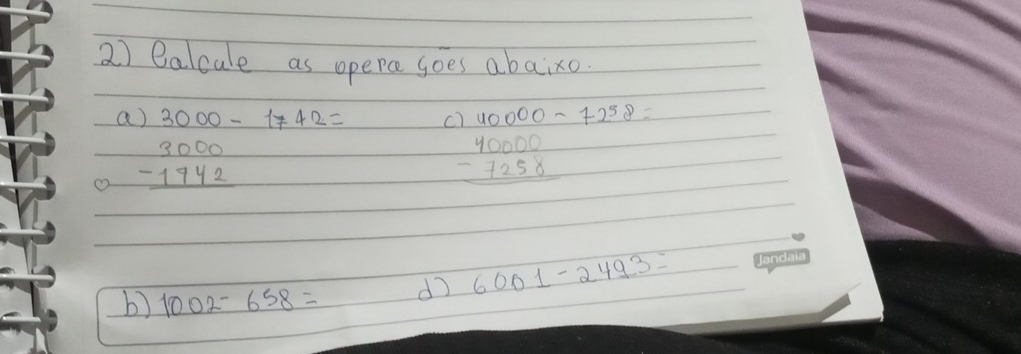 2) Calcule as operações abaixo.
a) 3000 - 1742 =
c) 40000 - 7258 =
3000
40000
- 1742
- 7258
b) 1002 - 658 =
d) 6001 - 2493 =
Jandaia